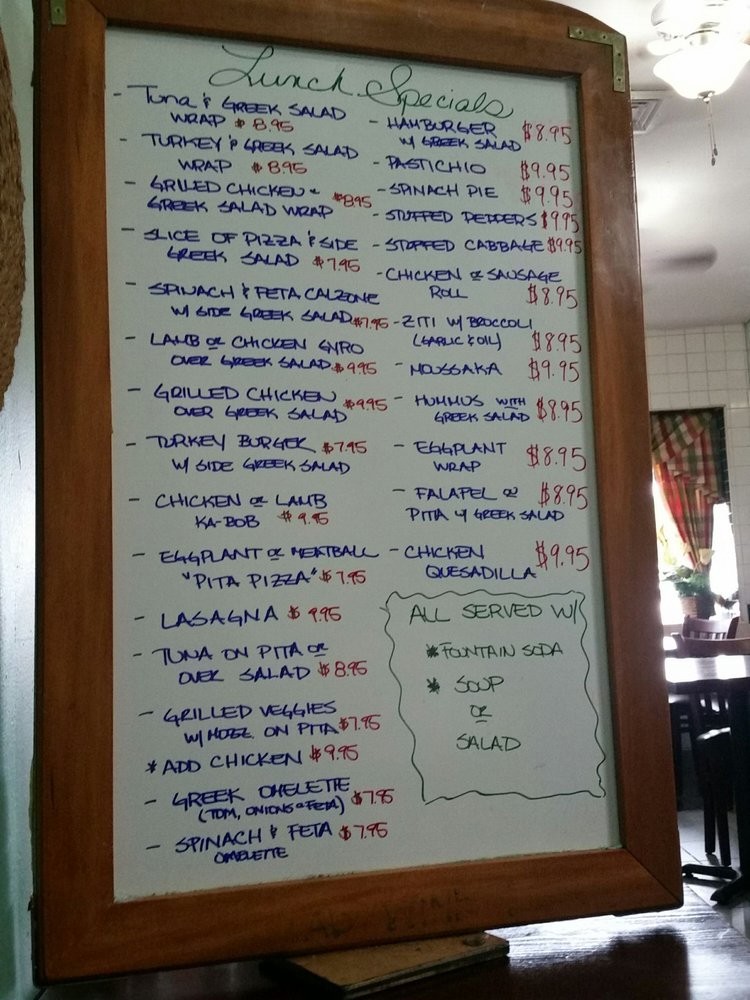 Lunch Specials
- Tuna & GREEK SALAD
WRAP $8.95
- TURKEY & GREEK SALAD
WRAP $8.95
- GRILLED CHICKEN &
GREEK SALAD WRAP $8.95
- SLICE OF PIZZA & SIDE
GREEK SALAD $7.95
- SPINACH & FETA CALZONE
W/ SIDE GREEK SALAD $7.95
- LAMB or CHICKEN GYRO
OVER GREEK SALAD $9.95
- GRILLED CHICKEN
OVER GREEK SALAD $9.95
- TURKEY BURGER $7.95
W/ SIDE GREEK SALAD
- CHICKEN or LAMB
KA-BOB $9.95
- EGGPLANT or MEATBALL
"PITA PIZZA" $7.95
- LASAGNA $9.95
- TUNA ON PITA or
OVER SALAD $8.95
- GRILLED VEGGIES
W/ MOZZ. ON PITA $7.95
* ADD CHICKEN $9.95
- GREEK OMELETTE
(TOM, ONIONS & FETA) $7.95
- SPINACH & FETA $7.95
OMELETTE
- HAMBURGER $8.95
W/ GREEK SALAD
- PASTICHIO $9.95
- SPINACH PIE $9.95
- STUFFED PEPPERS $9.95
- STOFFED CABBAGE $9.95
- CHICKEN or SAUSAGE
ROLL $8.95
- ZITI W/ BROCCOLI
(GARLIC & OIL) $8.95
- MOUSSAKA $9.95
- HUMMUS WITH
GREEK SALAD $8.95
- EGGPLANT
WRAP $8.95
- FALAFEL or $8.95
PITA W/ GREEK SALAD
- CHICKEN $9.95
QUESADILLA
ALL SERVED W/
* FOUNTAIN SODA
* SOUP
or
SALAD